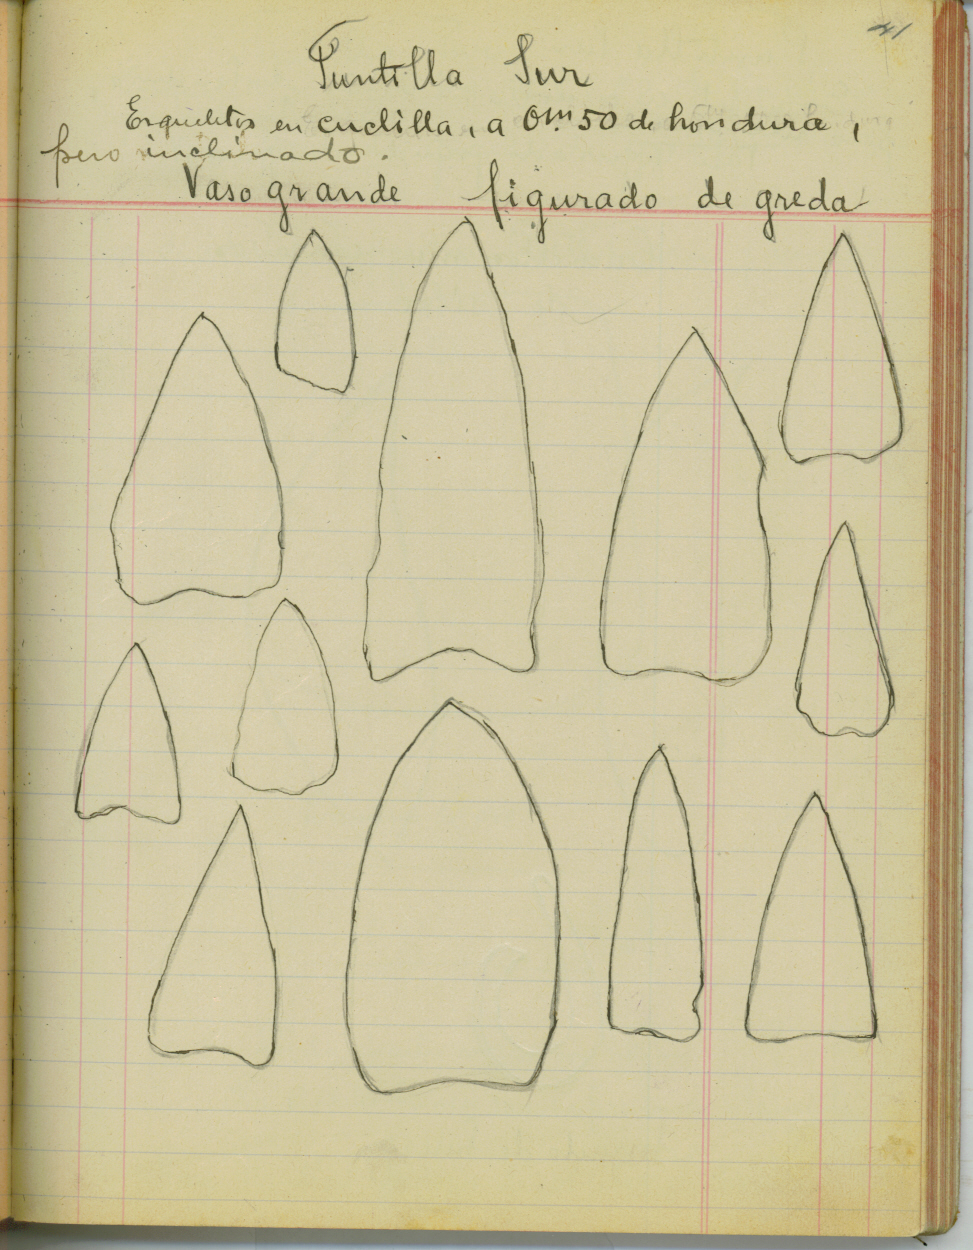 41
Puntilla Sur
Esqueletos en cuclilla, a 0m.50 de hondura,
pero inclinado.
Vaso grande figurado de greda